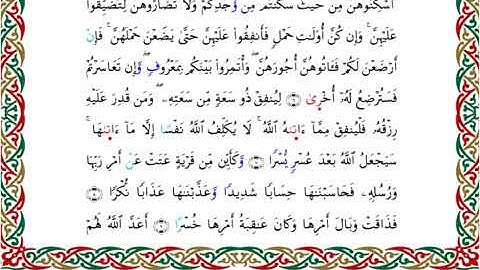 أَسْكِنُوهُنَّ مِنْ حَيْثُ سَكَنتُم مِّن وُجْدِكُمْ وَلَا تُضَآرُّوهُنَّ لِتُضَيِّقُوا۟
عَلَيْهِنَّ ۚ وَإِن كُنَّ أُو۟لَٰتِ حَمْلٍ فَأَنفِقُوا۟ عَلَيْهِنَّ حَتَّىٰ يَضَعْنَ حَمْلَهُنَّ ۚ فَإِنْ
أَرْضَعْنَ لَكُمْ فَـَٔاتُوهُنَّ أُجُورَهُنَّ ۖ وَأْتَمِرُوا۟ بَيْنَكُم بِمَعْرُوفٍ ۖ وَإِن تَعَاسَرْتُمْ
فَسَتُرْضِعُ لَهُۥٓ أُخْرَىٰ ۝ لِيُنفِقْ ذُو سَعَةٍ مِّن سَعَتِهِۦ ۖ وَمَن قُدِرَ عَلَيْهِ
رِزْقُهُۥ فَلْيُنفِقْ مِمَّآ ءَاتَىٰهُ ٱللَّهُ ۚ لَا يُكَلِّفُ ٱللَّهُ نَفْسًا إِلَّا مَآ ءَاتَىٰهَا ۚ
سَيَجْعَلُ ٱللَّهُ بَعْدَ عُسْرٍ يُسْرًا ۝ وَكَأَيِّن مِّن قَرْيَةٍ عَتَتْ عَنْ أَمْرِ رَبِّهَا
وَرُسُلِهِۦ فَحَاسَبْنَٰهَا حِسَابًا شَدِيدًا وَعَذَّبْنَٰهَا عَذَابًا نُّكْرًا ۝
فَذَاقَتْ وَبَالَ أَمْرِهَا وَكَانَ عَٰقِبَةُ أَمْرِهَا خُسْرًا ۝ أَعَدَّ ٱللَّهُ لَهُمْ